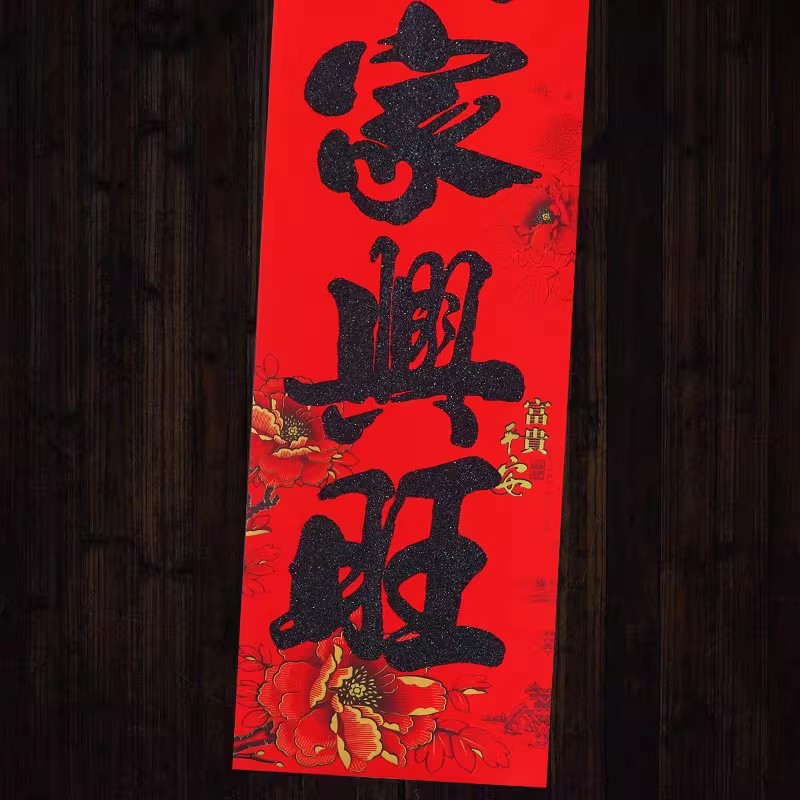 家興旺
富貴
平安